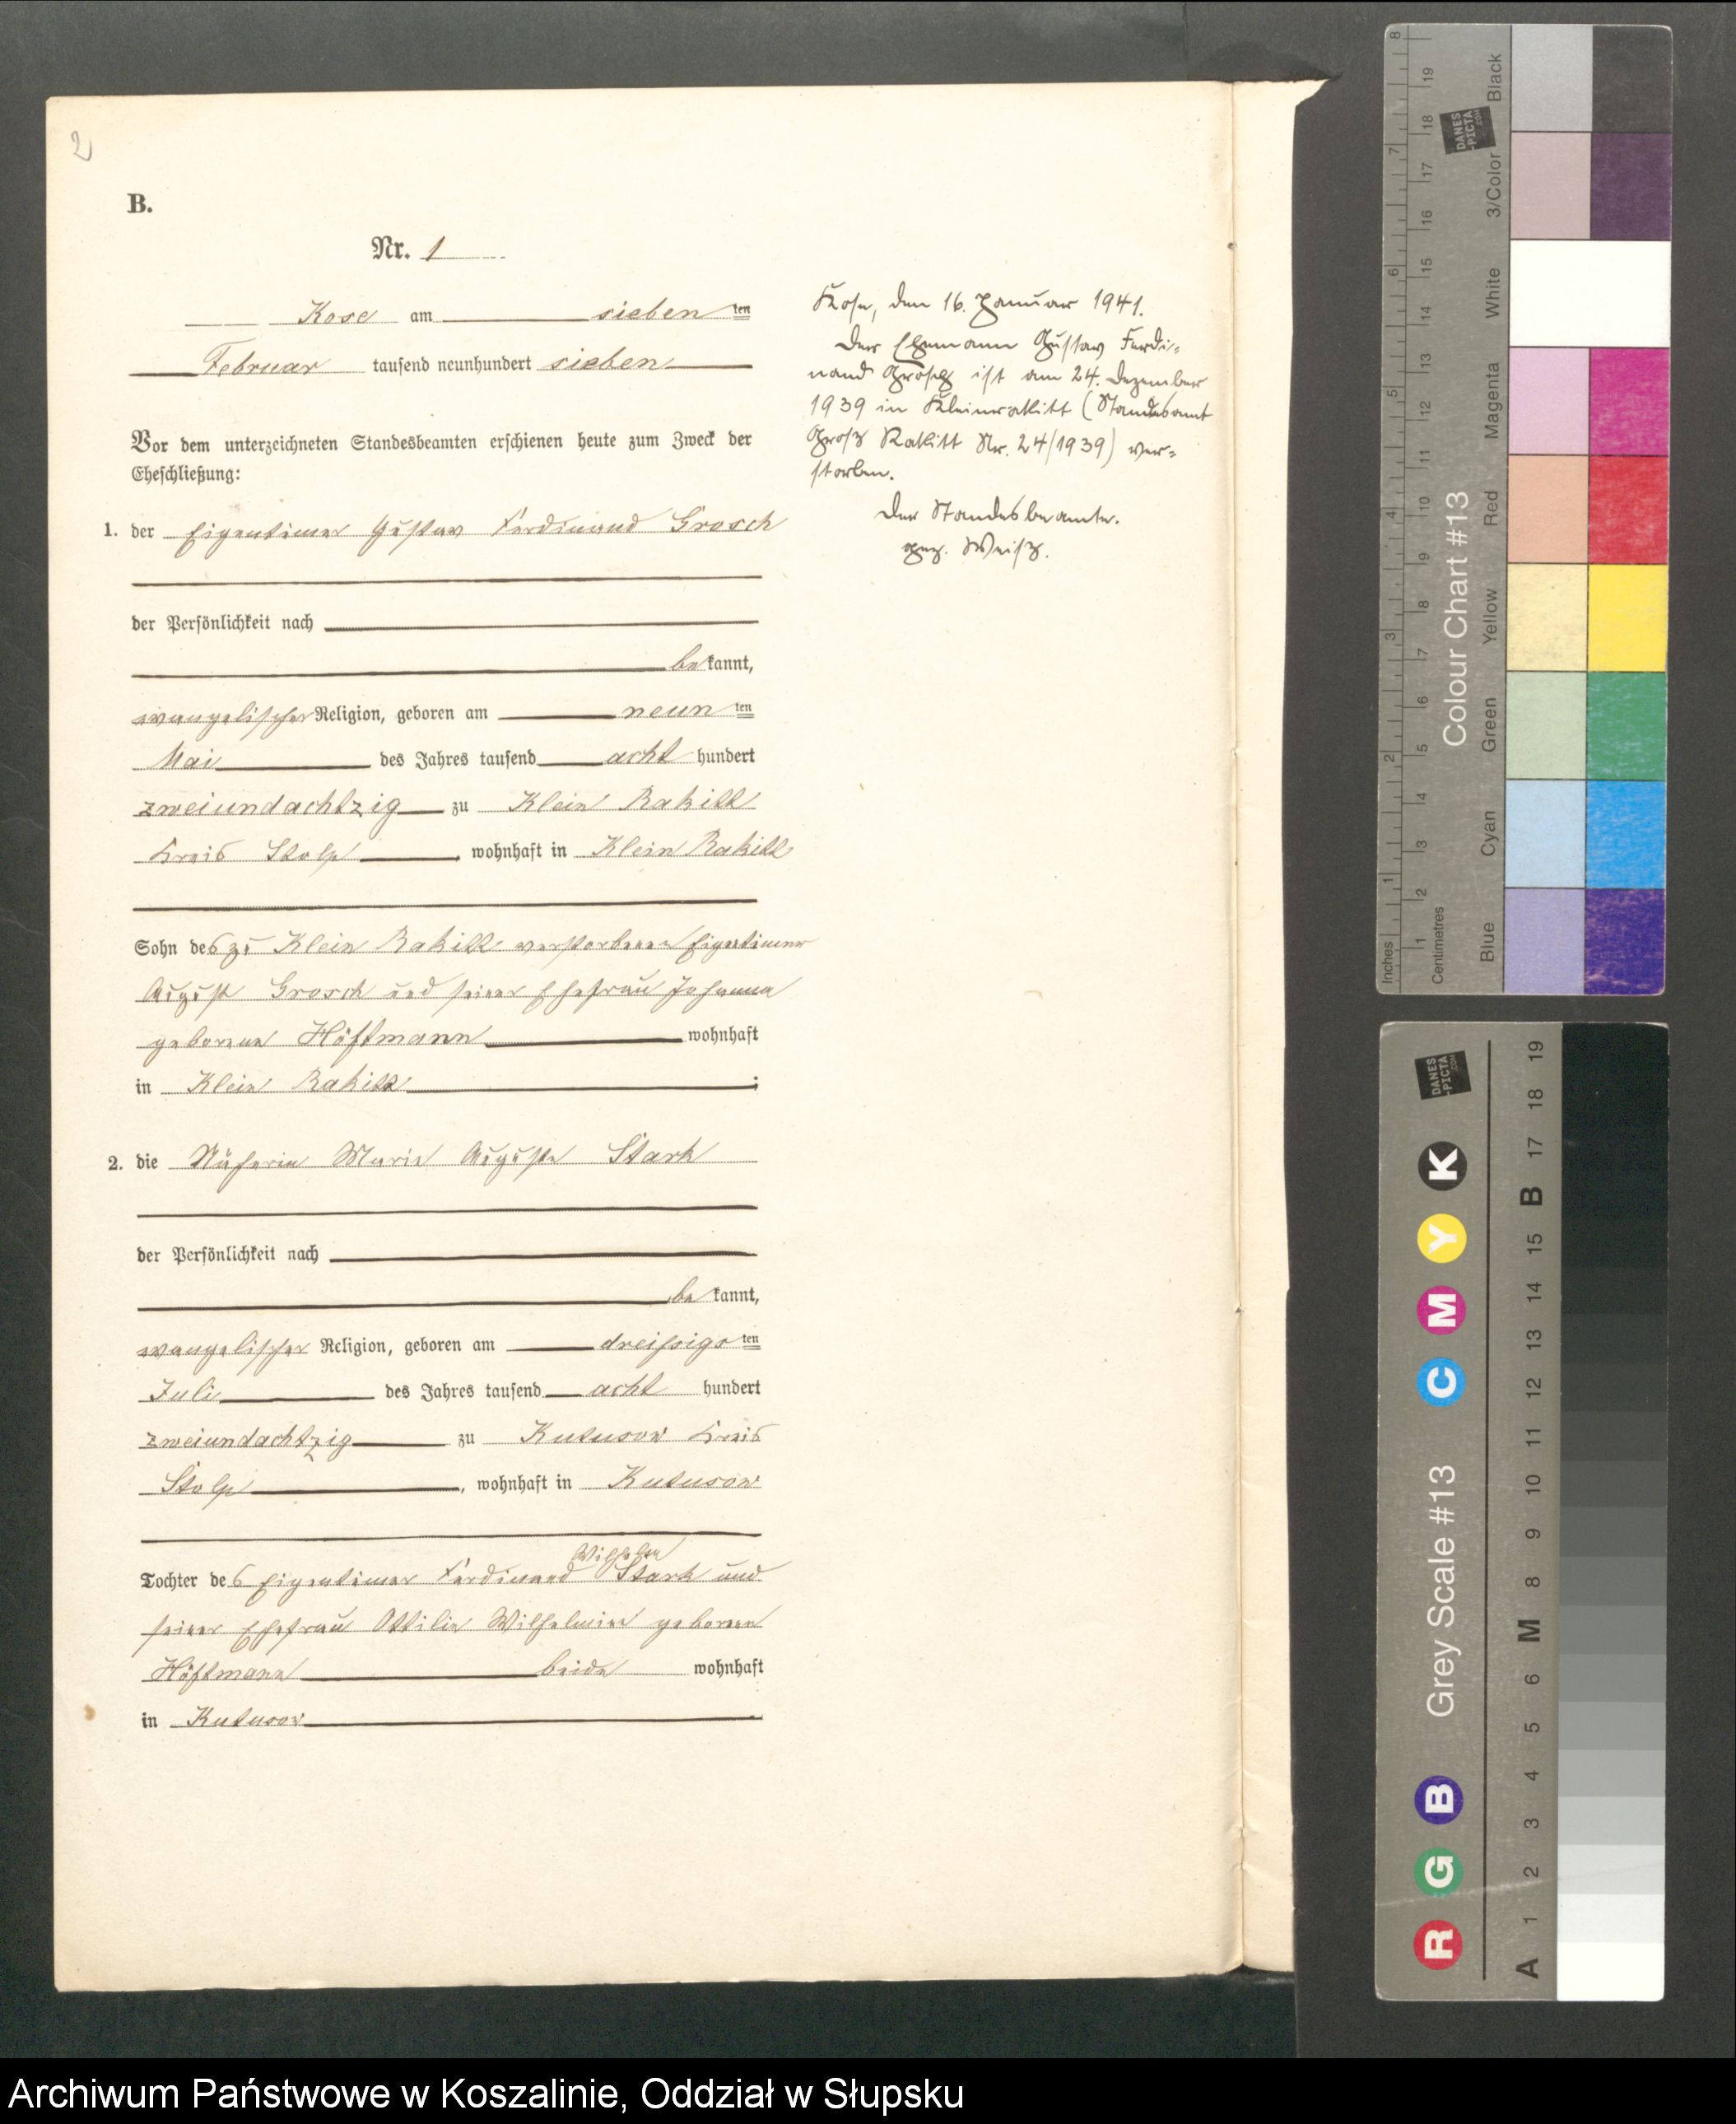 2
B.
Nr. 1
Kose am sieben ten
Februar tausend neunhundert sieben
Vor dem unterzeichneten Standesbeamten erschienen heute zum Zweck der
Eheschließung:
1. der Eigentümer Gustav Ferdinand Grosch
der Persönlichkeit nach
be kannt,
evangelischer Religion, geboren am neun ten
Mai des Jahres tausend acht hundert
zweiundachtzig zu Klein Rakitt
Kreis Stolp, wohnhaft in Klein Rakitt
Sohn des zu Klein Rakitt verstorbenen Eigentümer
August Grosch und seiner Ehefrau Johanna
geborene Höftmann wohnhaft
in Klein Rakitt ;
2. die Näherin Marie Auguste Stark
der Persönlichkeit nach
be kannt,
evangelischer Religion, geboren am dreißigs ten
Juli des Jahres tausend acht hundert
zweiundachtzig zu Kutusow Kreis
Stolp, wohnhaft in Kutusow
Wilhelm
Tochter des Eigentümer Ferdinand Stark und
seiner Ehefrau Ottilie Wilhelmine geborene
Höftmann beide wohnhaft
in Kutusow
Kose, den 16. Januar 1941.
Der Ehemann Gustav Ferdi=
nand Grosch ist am 24. Dezember
1939 in Kleinrakitt (Standesamt
Groß Rakitt Nr. 24/1939) ver=
storben.
Der Standesbeamte.
gez. Weiß.
Inches 1 2 3 4 5 6 7 8
Centimetres 1 2 3 4 5 6 7 8 9 10 11 12 13 14 15 16 17 18 19
Colour Chart #13
DANES
-PICTA
.COM
Blue Cyan Green Yellow Red Magenta White 3/Color Black
Grey Scale #13
DANES
-PICTA
.COM
R G B C M Y K
A 1 2 3 4 5 6 M 8 9 10 11 12 13 14 15 B 17 18 19
Archiwum Państwowe w Koszalinie, Oddział w Słupsku